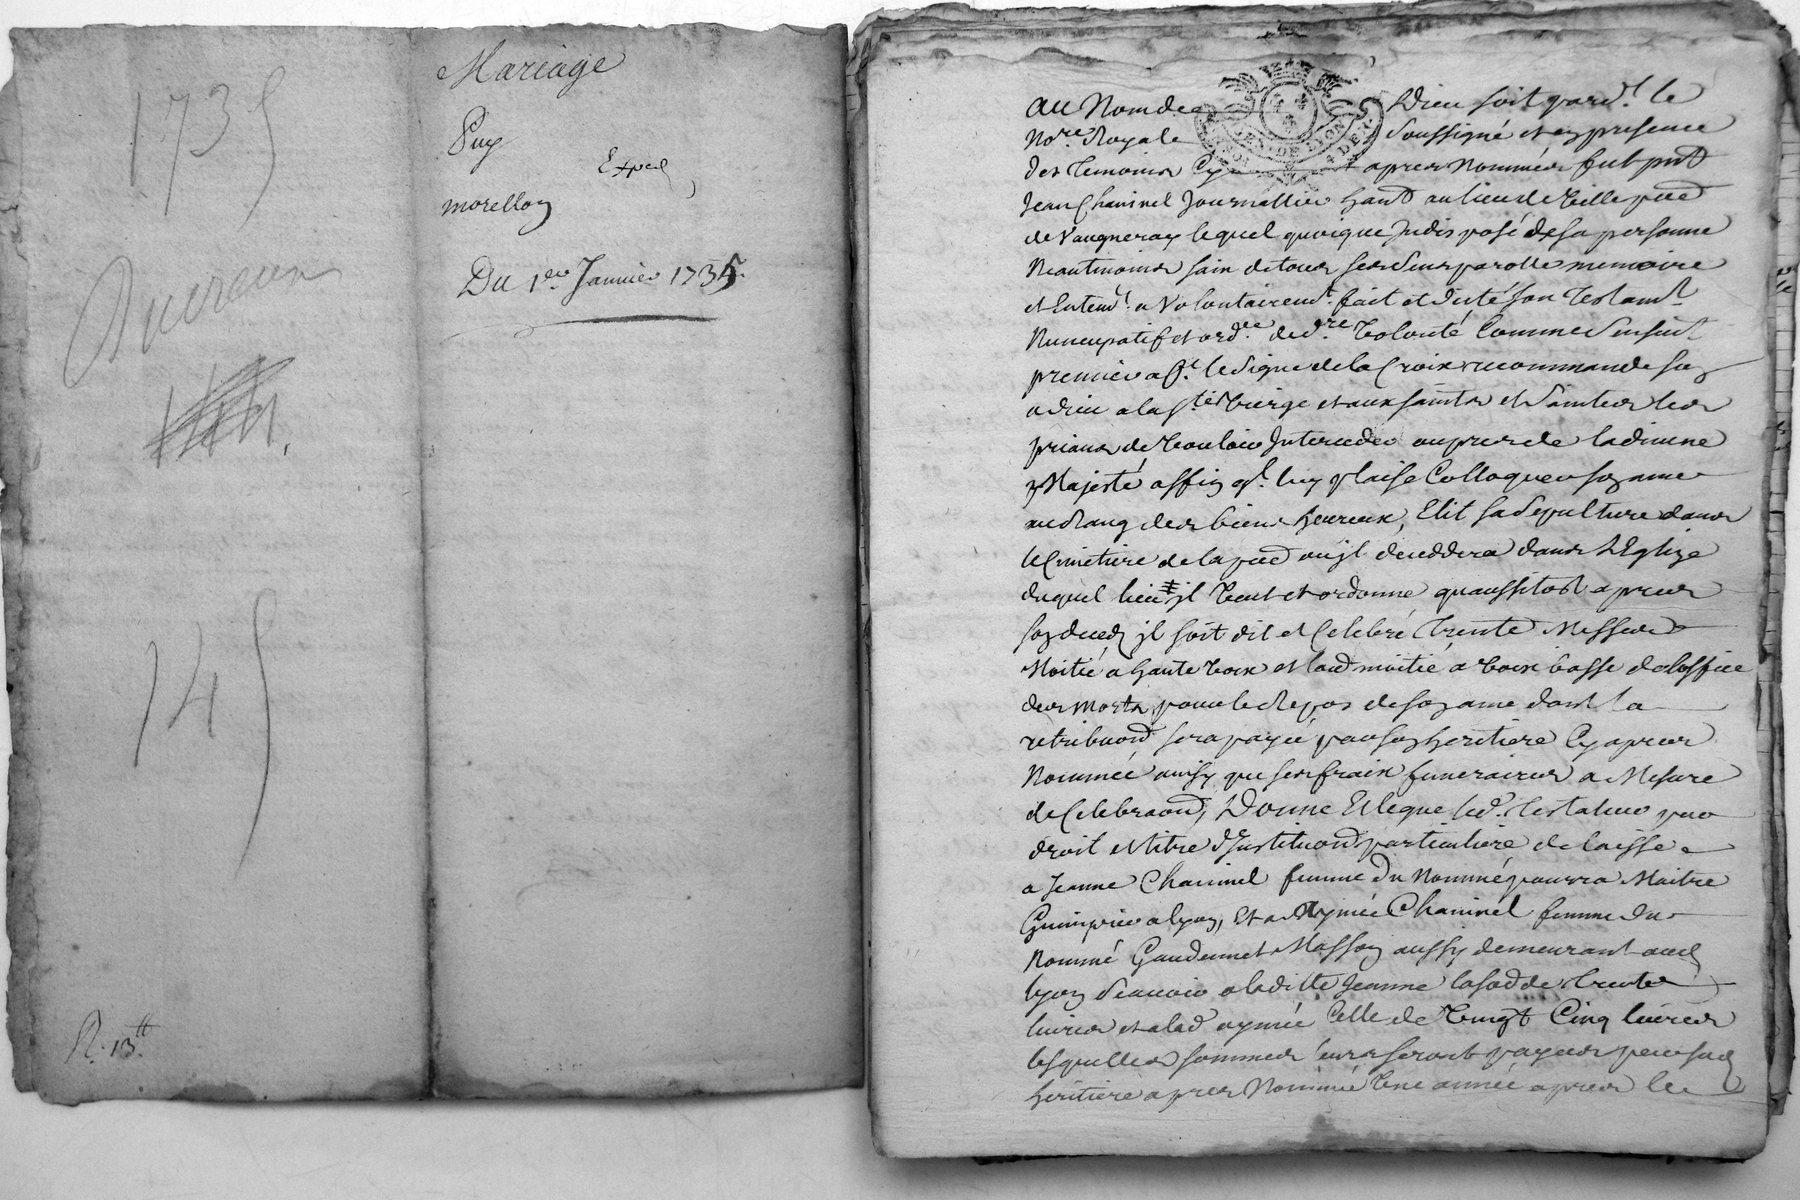 1735
Mariage
Puy
Exped
morellon
Du 1er Janvier 1735.
Ducreux
145
R. 13tt
GEN. DE LYON
au Nom de Dieu soit pardt. le
Nore. Royale soussigné et en presence
des temoins Cy apres Nommés fut pnt
Jean Chaninel Journallier hant au lieu de Veille prod
de Vaugneray lequel quoique Indisposé de sa personne
Neantmoins sain de tous ses sens parolle memoire
et Entendt. a Volontairemt. fait et dicté son Testamt.
Nuncupatif et ordce. de dre. Volonté Comme s'ensuit
premier a ft. le signe de la Croix recommande son
a dieu a la ste. Vierge et aux saints et saintes les
priant de Vouloir Interceder aupres de la divine
Majesté affin ql. luy plaise Colloquer son ame
au Rang des bien heureux, Elit sa sepulture dans
le Cimetiere de la pse ou jl deceddera dans L'Eglize
duquel lieu jl Veut et ordonne qu'aussitost apres
son deced jl soit dit et Celebré Trente Messes
Moitié a haute Voix et laud moitié a Voix basse de l'office
des morts pour le Repos de son ame dont la
retribuond sera payée par son heritiere Cy apres
Nommée ainsy que ses fraix funeraires a Mesure
de Celebraond, Donne Et legue led. Testateur par
droit et titre d'Instituond particuliere delaisse
a Jeanne Chaninel femme du Nommé Maitre
Guimpier a lyon, Et a Aymée Chaninel femme du
Nommé Gaudennet Masson aussy demeurant aud
lyon sçauoir a laditte Jeanne la sod de trente
livres et a lad aymée Celle de Vingt Cinq livres
lesquelles sommes seront payées par sad
heritiere apres Nommée Une année apres le